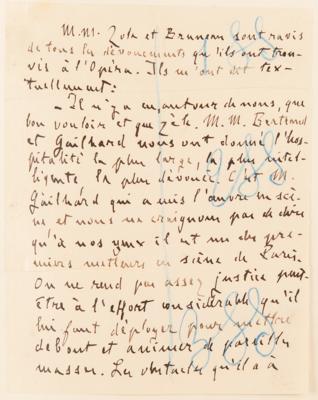 M.M. Zola et Bruneau sont ravis
de tous les dévouements qu'ils ont trou-
vés à l'Opéra. Ils m'ont dit tex-
tuellement:
- Il n'y a eu autour de nous, que
bon vouloir et que zèle. M.M. Bertrand
et Gailhard nous ont donné l'hos-
pitalité la plus large, la plus intel-
ligente la plus dévouée. C'est M.
Gailhard qui a mis l'œuvre en scè-
ne et nous ne craignons pas de dire
qu'à nos yeux il est un des pre-
miers metteurs en scène de Paris.
On ne rend pas assez justice peut-
être à l'effort considérable qu'il
lui faut déployer pour mettre
debout et animer de pareilles
masses. Les obstacles qu'il a à